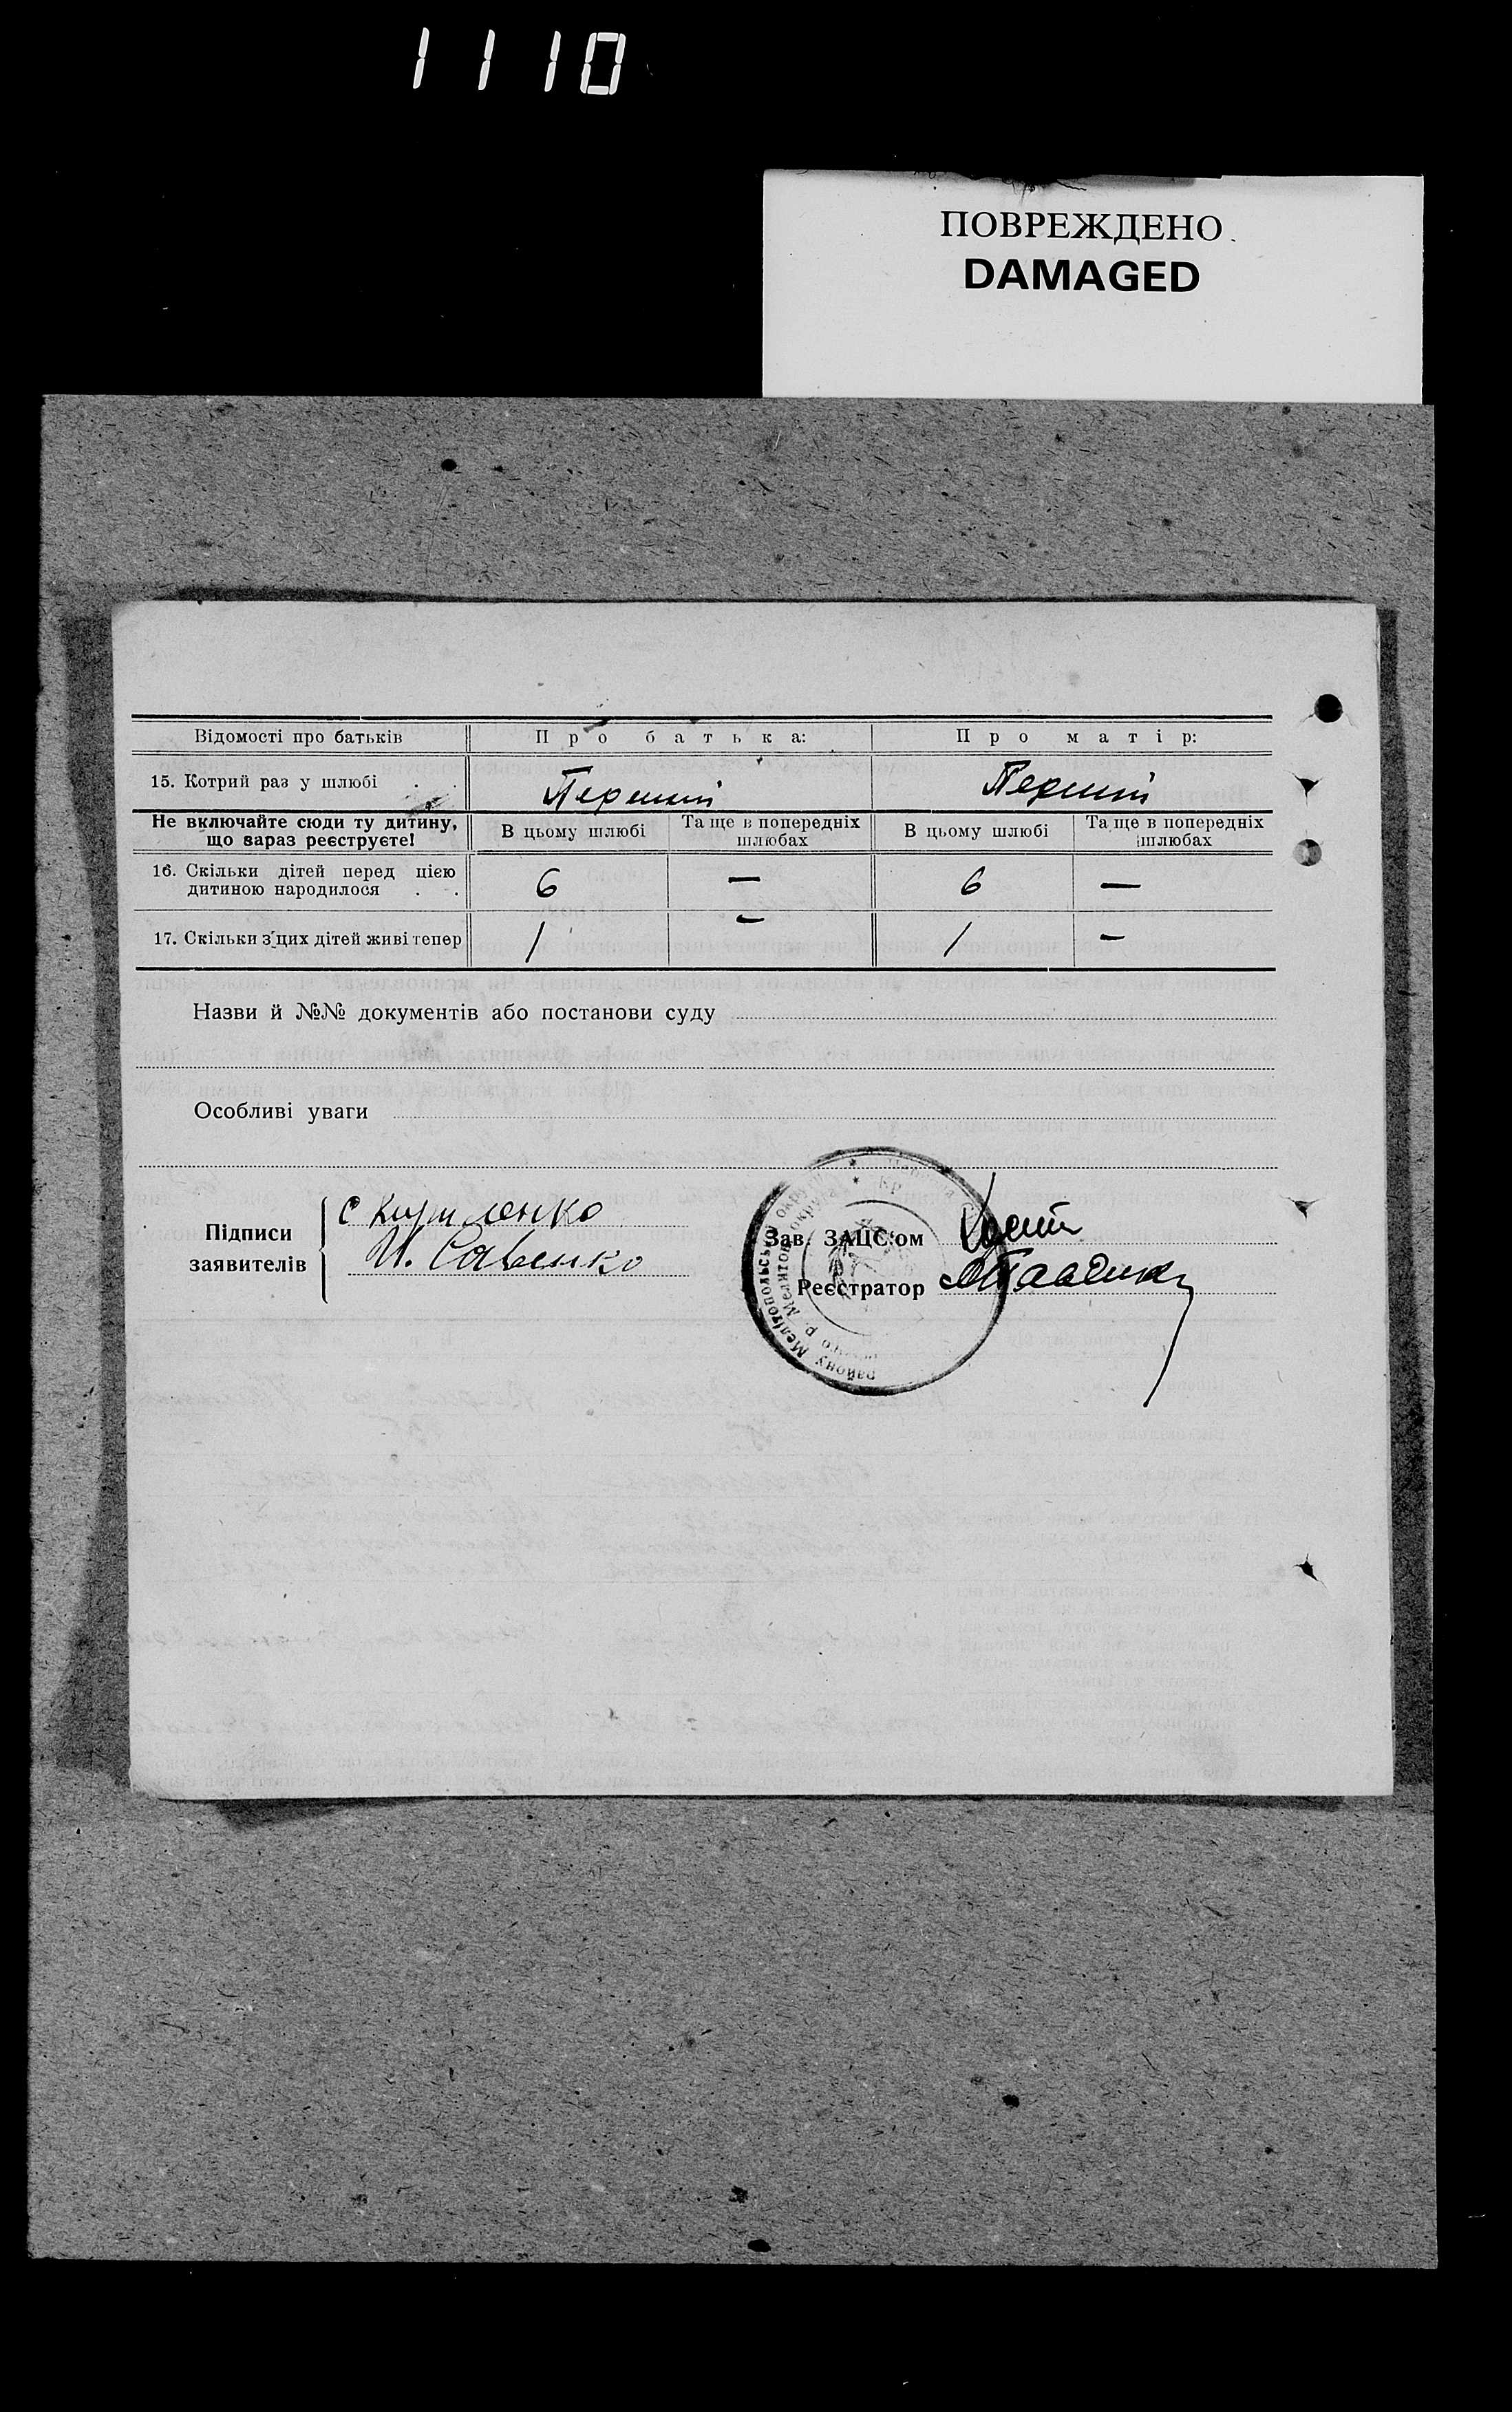 1110
ПОВРЕЖДЕНО
DAMAGED
Відомості про батьків | Про батька: | Про матір:
15. Котрий раз у шлюбі . . | Перший | Перший
Не включайте сюди ту дитину, що зараз реєструєте! | В цьому шлюбі | Та ще в попередніх шлюбах | В цьому шлюбі | Та ще в попередніх шлюбах
16. Скільки дітей перед цією дитиною народилося . . | 6 | — | 6 | —
17. Скільки з цих дітей живі тепер | 1 | — | 1 | —
Назви й №№ документів або постанови суду
Особливі уваги
Підписи заявителів
С Кириленко
И. Савенко
Зав. ЗАЦС'ом
Реєстратор
району Мелітопольської округи